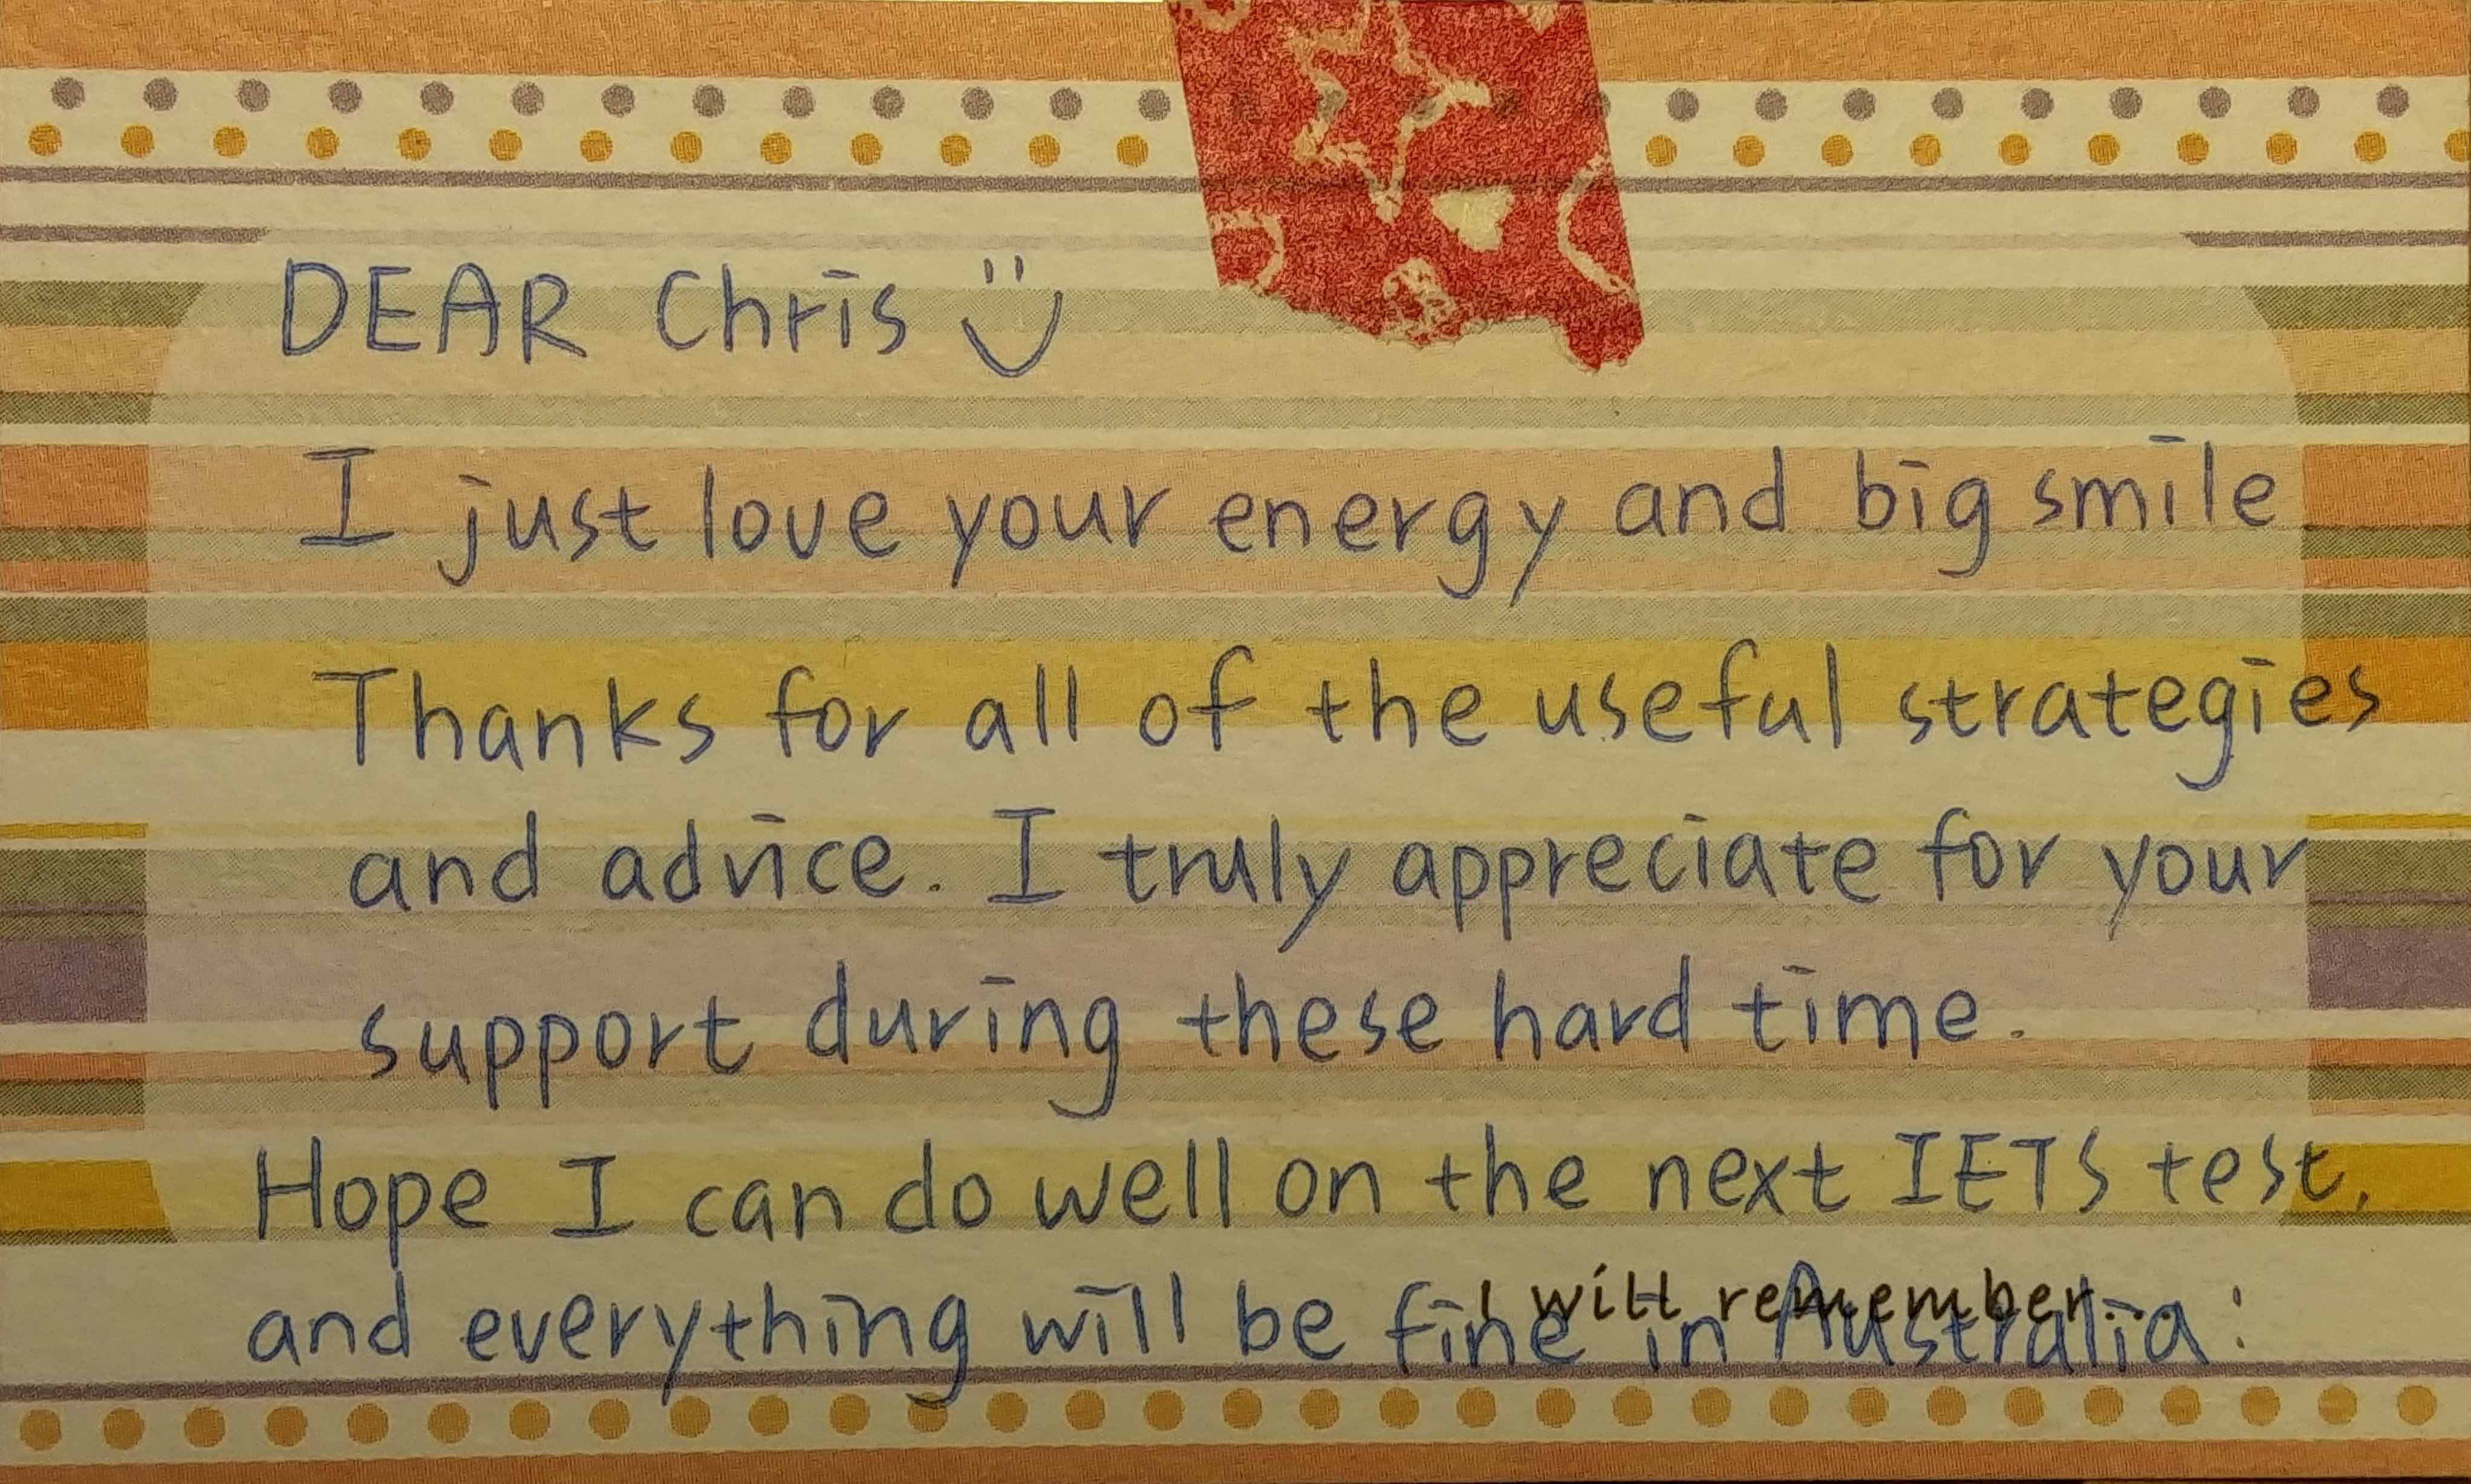 DEAR Chris
I just love your energy and big smile
Thanks for all of the useful strategies
and advice. I truly appreciate for your
support during these hard time.
Hope I can do well on the next IETS test,
and everything will be fine in Australia:
I will remember...